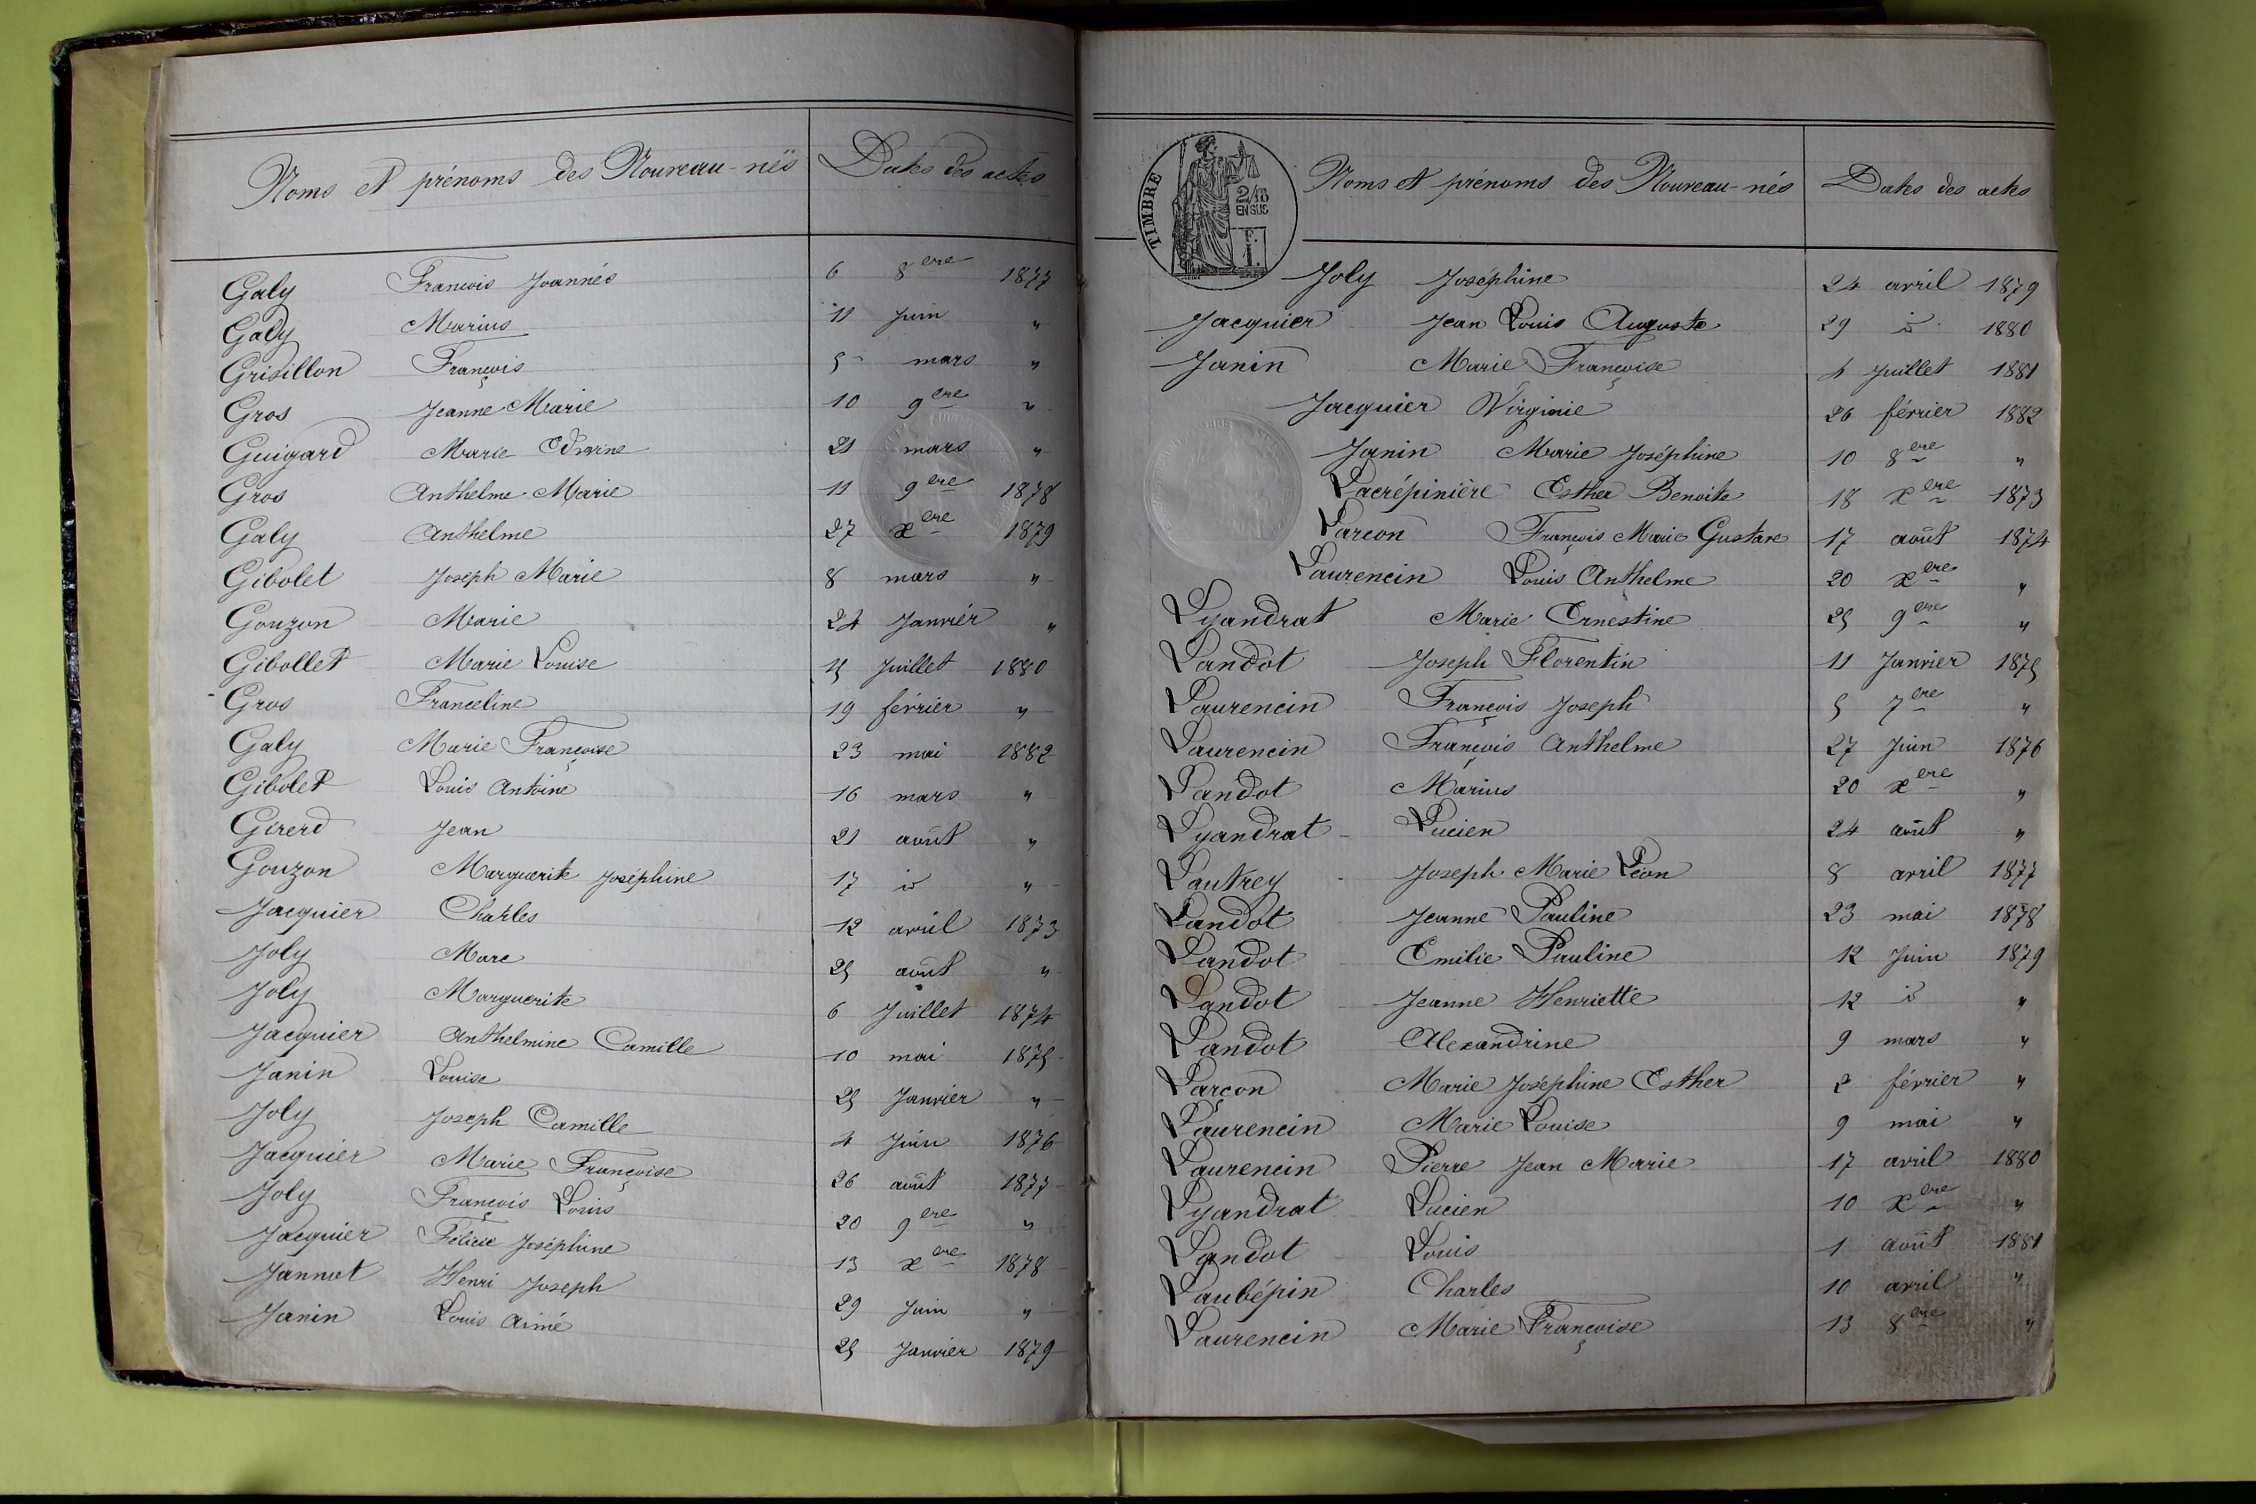 Noms et prénoms des Nouveau-nés Dates des actes
Galy François Joannès 6 8ere 1877
Galy Marius 11 Juin "
Grisillon François 5 mars "
Gros Jeanne Marie 10 9ere "
Guigard Marie Edwine 21 mars "
Gros Anthelme Marie 11 9ere 1878
Galy Anthelme 27 xere 1879
Gibolet Joseph Marie 8 mars "
Gouzon Marie 24 Janvier "
Gibollet Marie Louise 15 Juillet 1880
Gros Franceline 19 février "
Galy Marie Françoise 23 mai 1882
Gibolet Louis Antoine 16 mars "
Girerd Jean 21 août "
Gouzon Marguerite Joséphine 17 id "
Jacquier Charles 12 avril 1873
Joly Marc 25 août "
Joly Marguerite 6 Juillet 1874
Jacquier Anthelmine Camille 10 mai 1875
Janin Louise 25 Janvier "
Joly Joseph Camille 4 Juin 1876
Jacquier Marie Françoise 26 août 1877
Joly François Louis 20 9ere "
Jacquier Félicie Joséphine 13 xere 1878
Jannot Henri Joseph 29 Juin "
Janin Louis Aimé 25 Janvier 1879
TIMBRE
2/10
EN SUS
F.
1.
Noms et prénoms des Nouveau-nés Dates des actes
Joly Joséphine 24 avril 1879
Jacquier Jean Louis Auguste 29 id 1880
Janin Marie Françoise 4 Juillet 1881
Jacquier Virginie 26 février 1882
Janin Marie Joséphine 10 8ere "
Lacrépinière Esther Benoite 18 xere 1873
Larcon François Marie Gustave 17 août 1874
Laurencin Louis Anthelme 20 xere "
Lyandrat Marie Ernestine 25 9ere "
Landot Joseph Florentin 11 Janvier 1875
Laurencin François Joseph 5 7ere "
Laurencin François Anthelme 27 Juin 1876
Landot Marius 20 xere "
Lyandrat Lucien 24 août "
Lautrey Joseph Marie Léon 8 avril 1877
Landot Jeanne Pauline 23 mai 1878
Landot Emilie Pauline 12 Juin 1879
Landot Jeanne Henriette 12 id "
Landot Alexandrine 9 mars "
Larçon Marie Joséphine Esther 2 février "
Laurencin Marie Louise 9 mai "
Laurencin Pierre Jean Marie 17 avril 1880
Lyandrat Lucien 10 xere "
Landot Louis 1 août 1881
Laubépin Charles 10 avril "
Laurencin Marie Françoise 13 8ere "